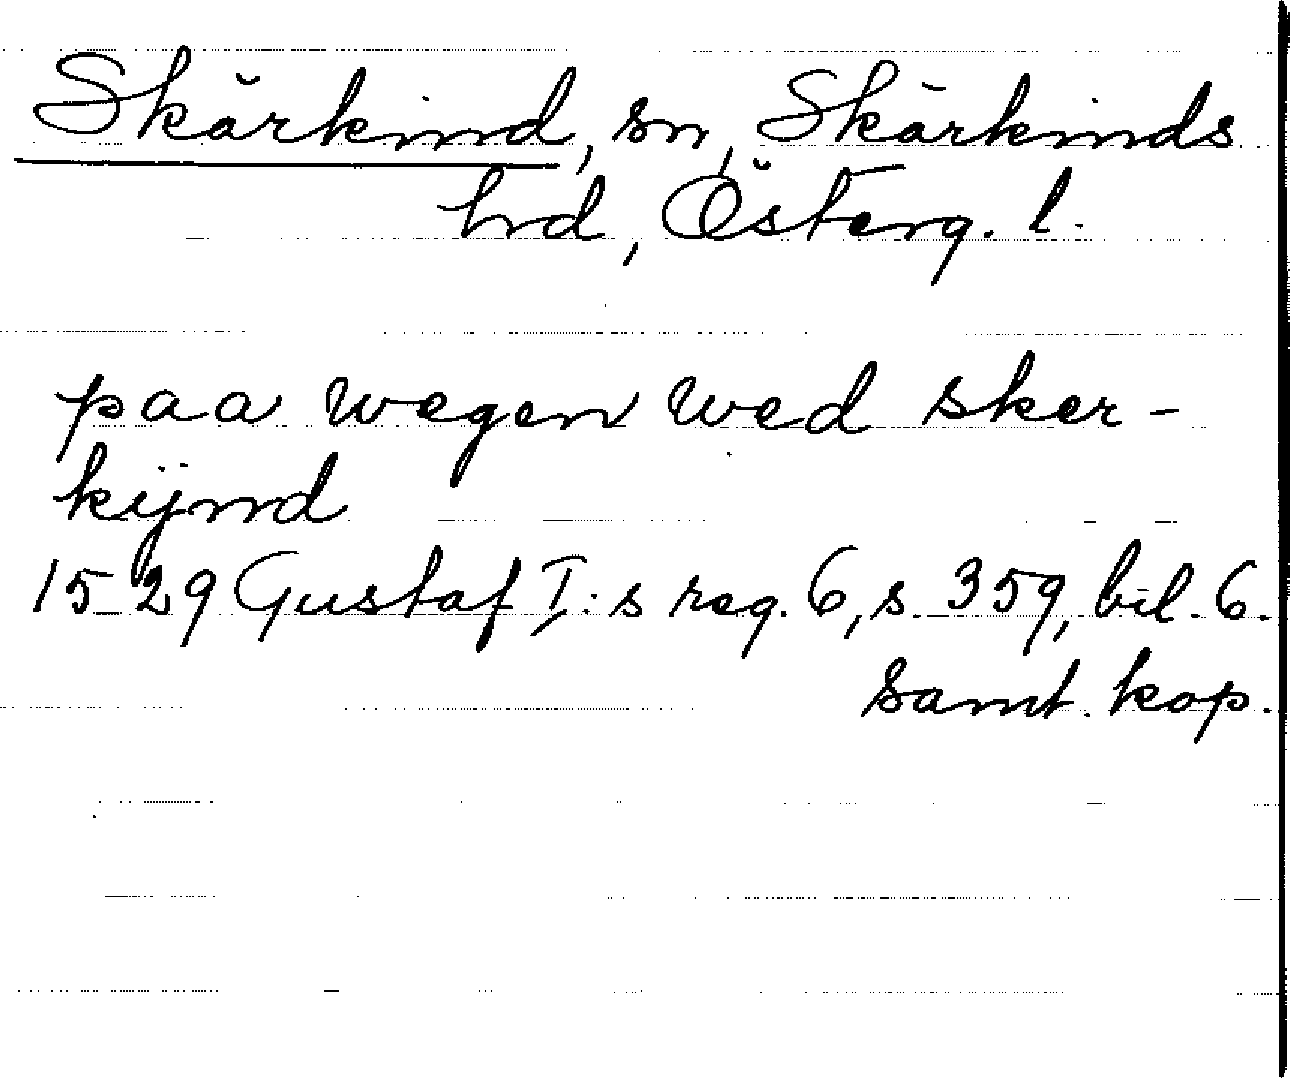 Skärkind, sn, Skärkinds
hrd, Österg. l.
paa wegen wed sker-
kijnd
1529 Gustaf I:s reg. 6, s. 359, bil. 6.
samt. kop.